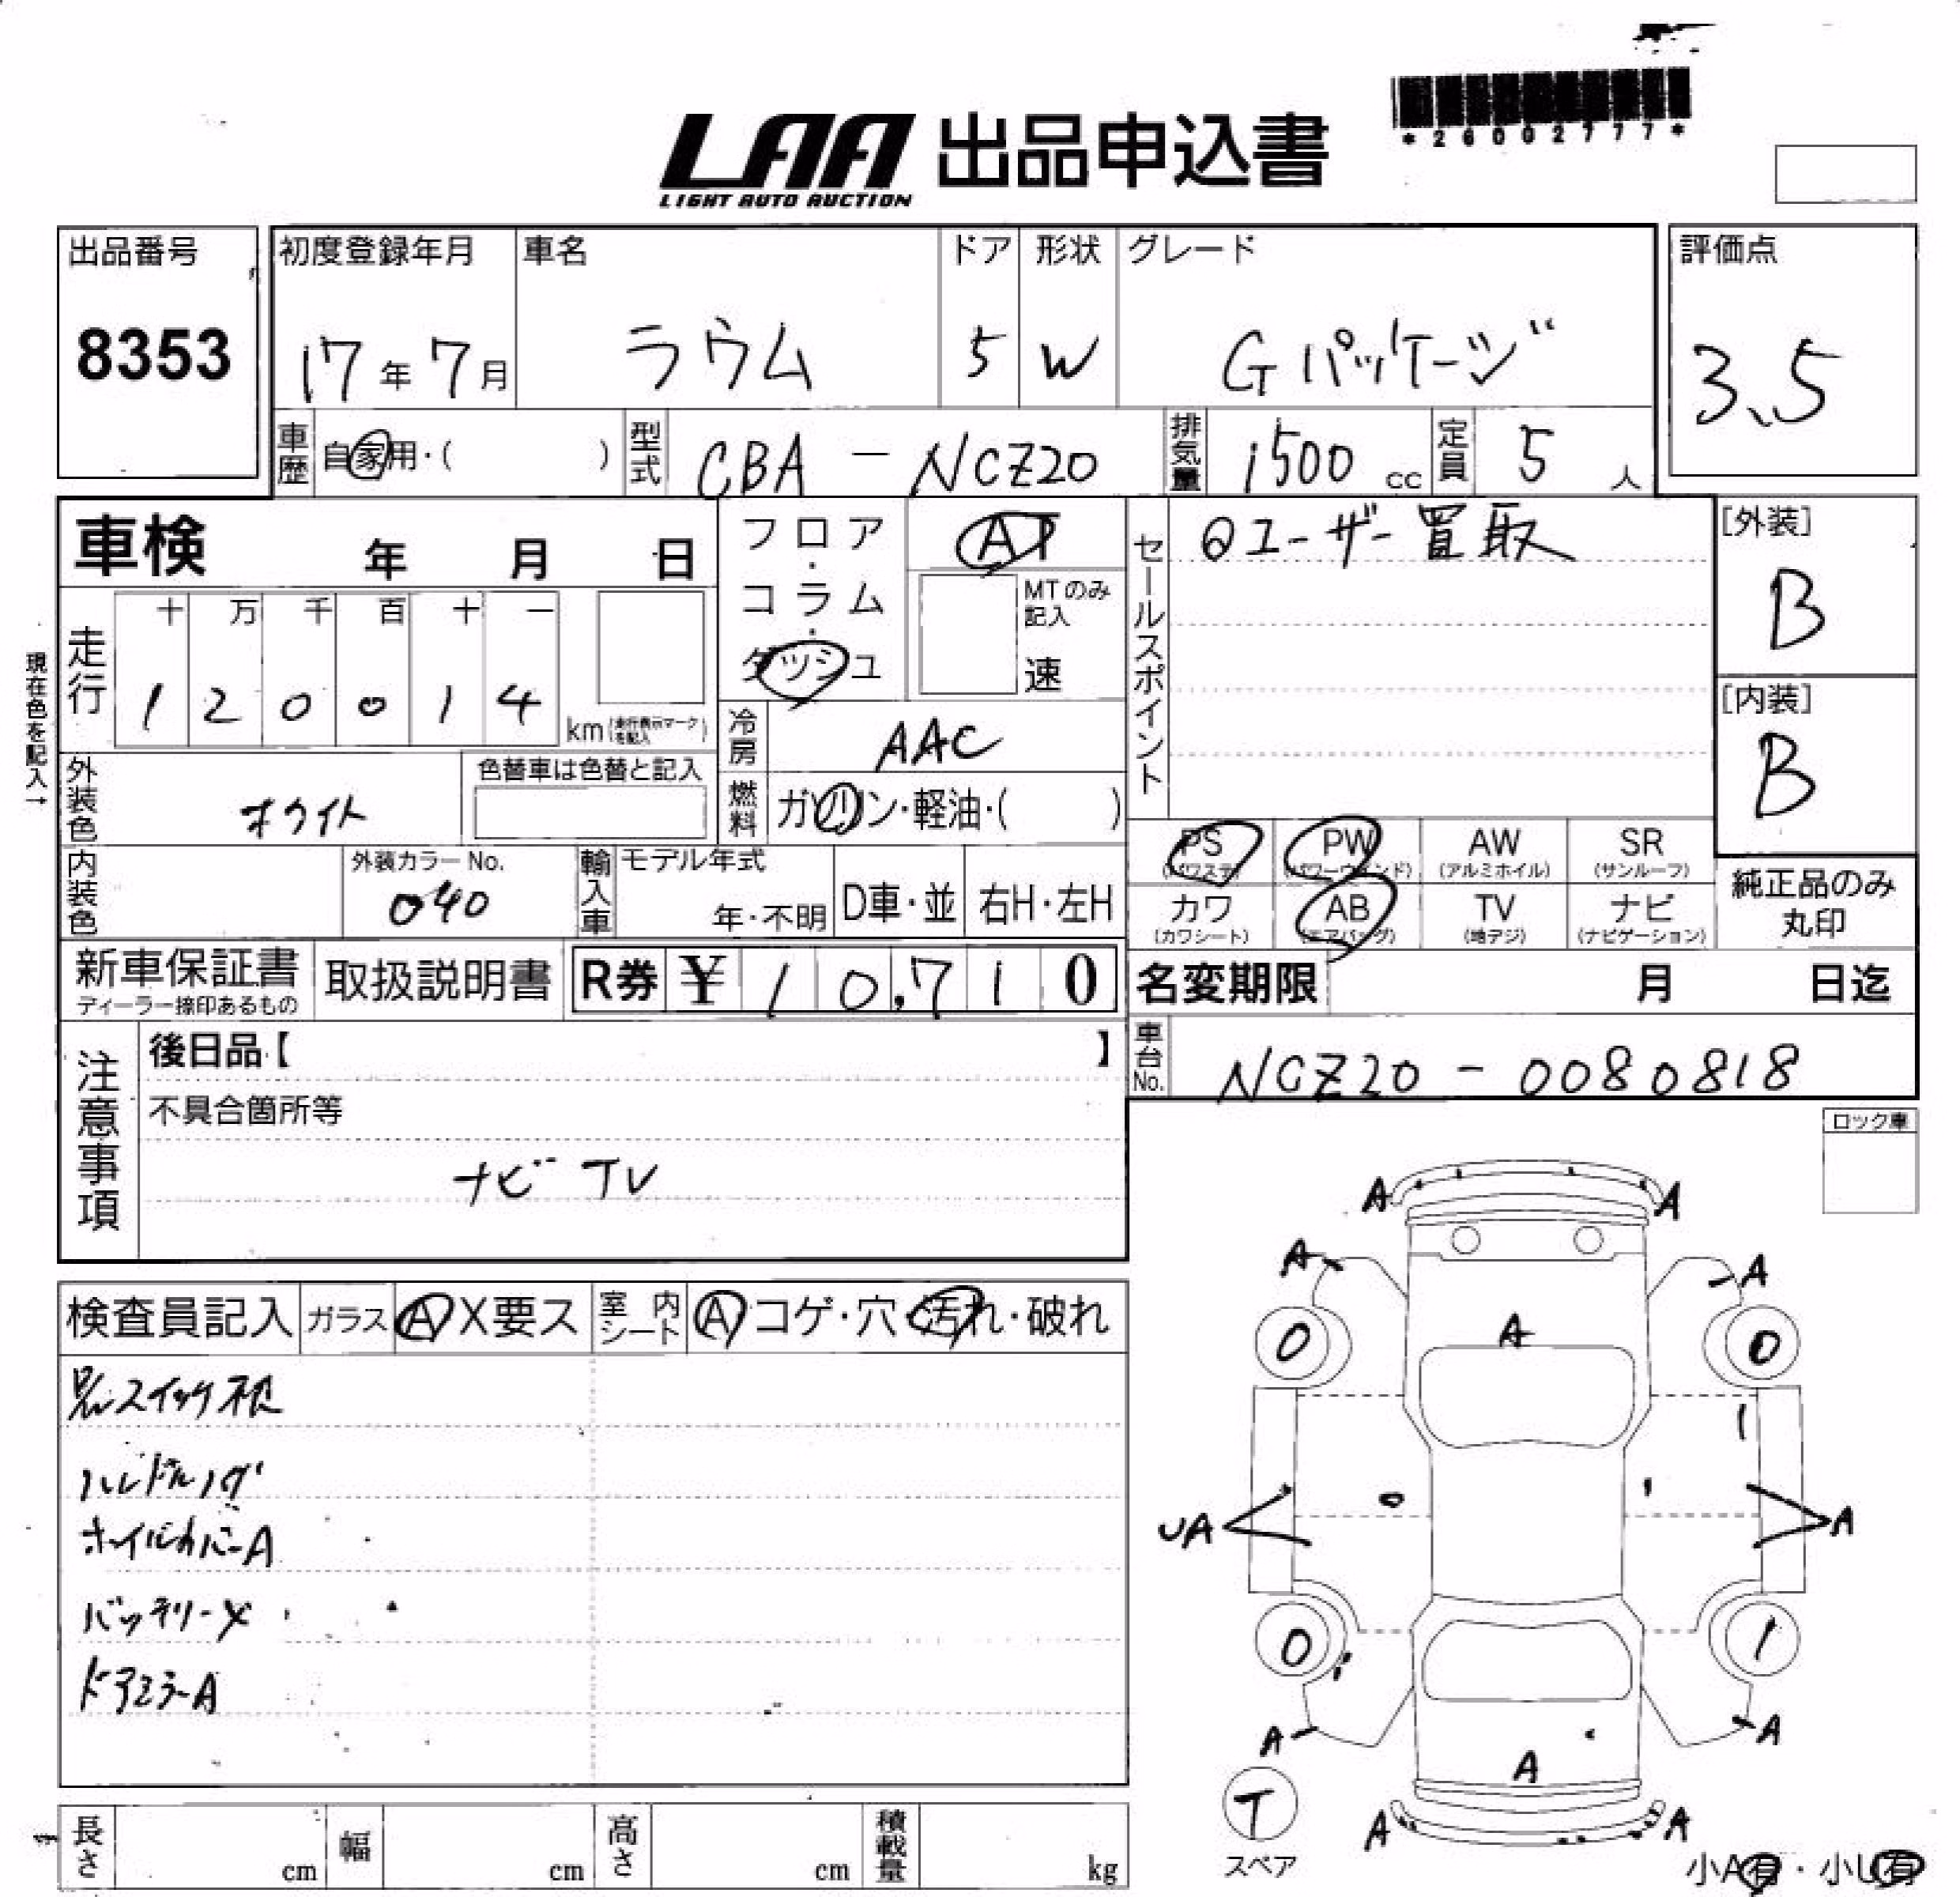 *26002777*
LAA 出品申込書
LIGHT AUTO AUCTION
出品番号 初度登録年月 車名 ドア 形状 グレード 評価点
8353 17年7月 ラウム 5 W Gパッケージ 3.5
車歴 自家用・( ) 型式 CBA-NCZ20 排気量 1500cc 定員 5人
車検 年 月 日
フロア・コラム・ダッシュ
AT
MTのみ記入
速
セールスポイント
ユーザー買取
[外装]
B
[内装]
B
現在色を記入→
走行 十 万 千 百 十 一
1 2 0 0 1 4 km(走行表示マークを記入)
冷房 AAC
外装色 ホワイト 色替車は色替と記入
燃料 ガソリン・軽油・( )
PS(パワステ) PW(パワーウインド) AW(アルミホイル) SR(サンルーフ)
カワ(カワシート) AB(エアバッグ) TV(地デジ) ナビ(ナビゲーション)
純正品のみ丸印
内装色 外装カラーNo. 040 輸入車 モデル年式 年・不明 D車・並 右H・左H
新車保証書 取扱説明書 R券 ¥10,710
ディーラー捺印あるもの
名変期限 月 日迄
車台No. NCZ20-0080818
注意事項
後日品【 】
不具合箇所等
ナビ TV
ロック車
検査員記入 ガラス A X要ス 室内シート A コゲ・穴・汚れ・破れ
ハンドルハゲ
ホイルカバーA
バッテリーX
ドアミラーA
A A
A A
0 A 0
1
UA A
0 1
A A
A
T A A
スペア
小A有・小U有
長さ cm 幅 cm 高さ cm 積載量 kg